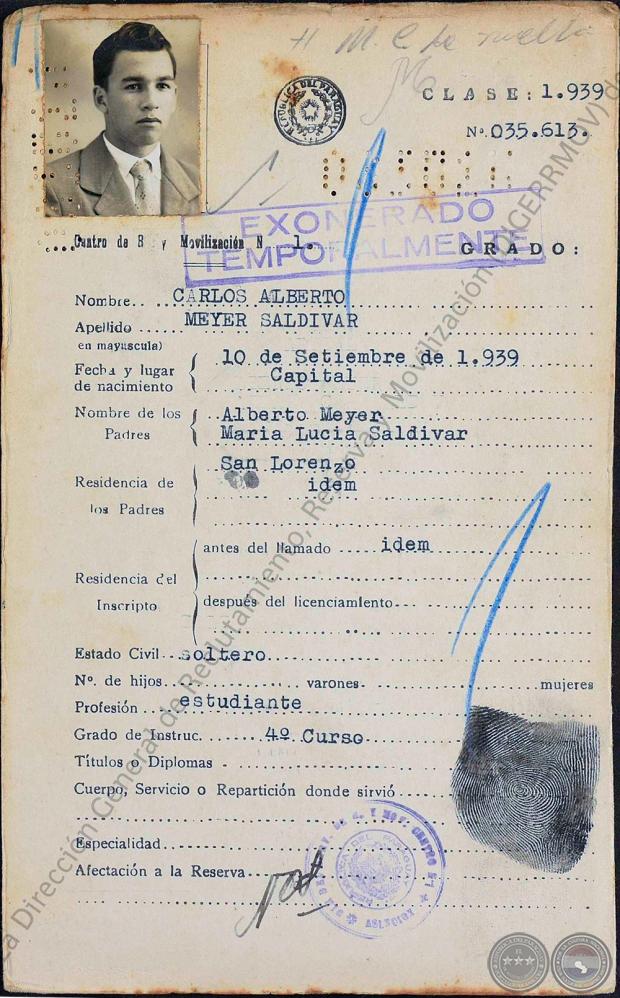 REPUBLICA DEL PARAGUAY
CLASE: 1.939
Nº 035.613.
EXONERADO
TEMPORALMENTE
Centro de R y Movilización N 1.
GRADO:
Nombre CARLOS ALBERTO
Apellido MEYER SALDIVAR
en mayuscula)
Fecha y lugar de nacimiento { 10 de Setiembre de 1.939
Capital
Nombre de los Padres { Alberto Meyer
Maria Lucia Saldivar
Residencia de los Padres { San Lorenzo
idem
Residencia del Inscripto { antes del llamado idem
después del licenciamiento
Estado Civil soltero
Nº. de hijos varones mujeres
Profesión estudiante
Grado de Instruc. 4º Curso
Títulos o Diplomas -
Cuerpo, Servicio o Repartición donde sirvió
Especialidad
Afectación a la Reserva
La Dirección General de Reclutamiento, Reserva y Movilización (DIGERRMOV) de